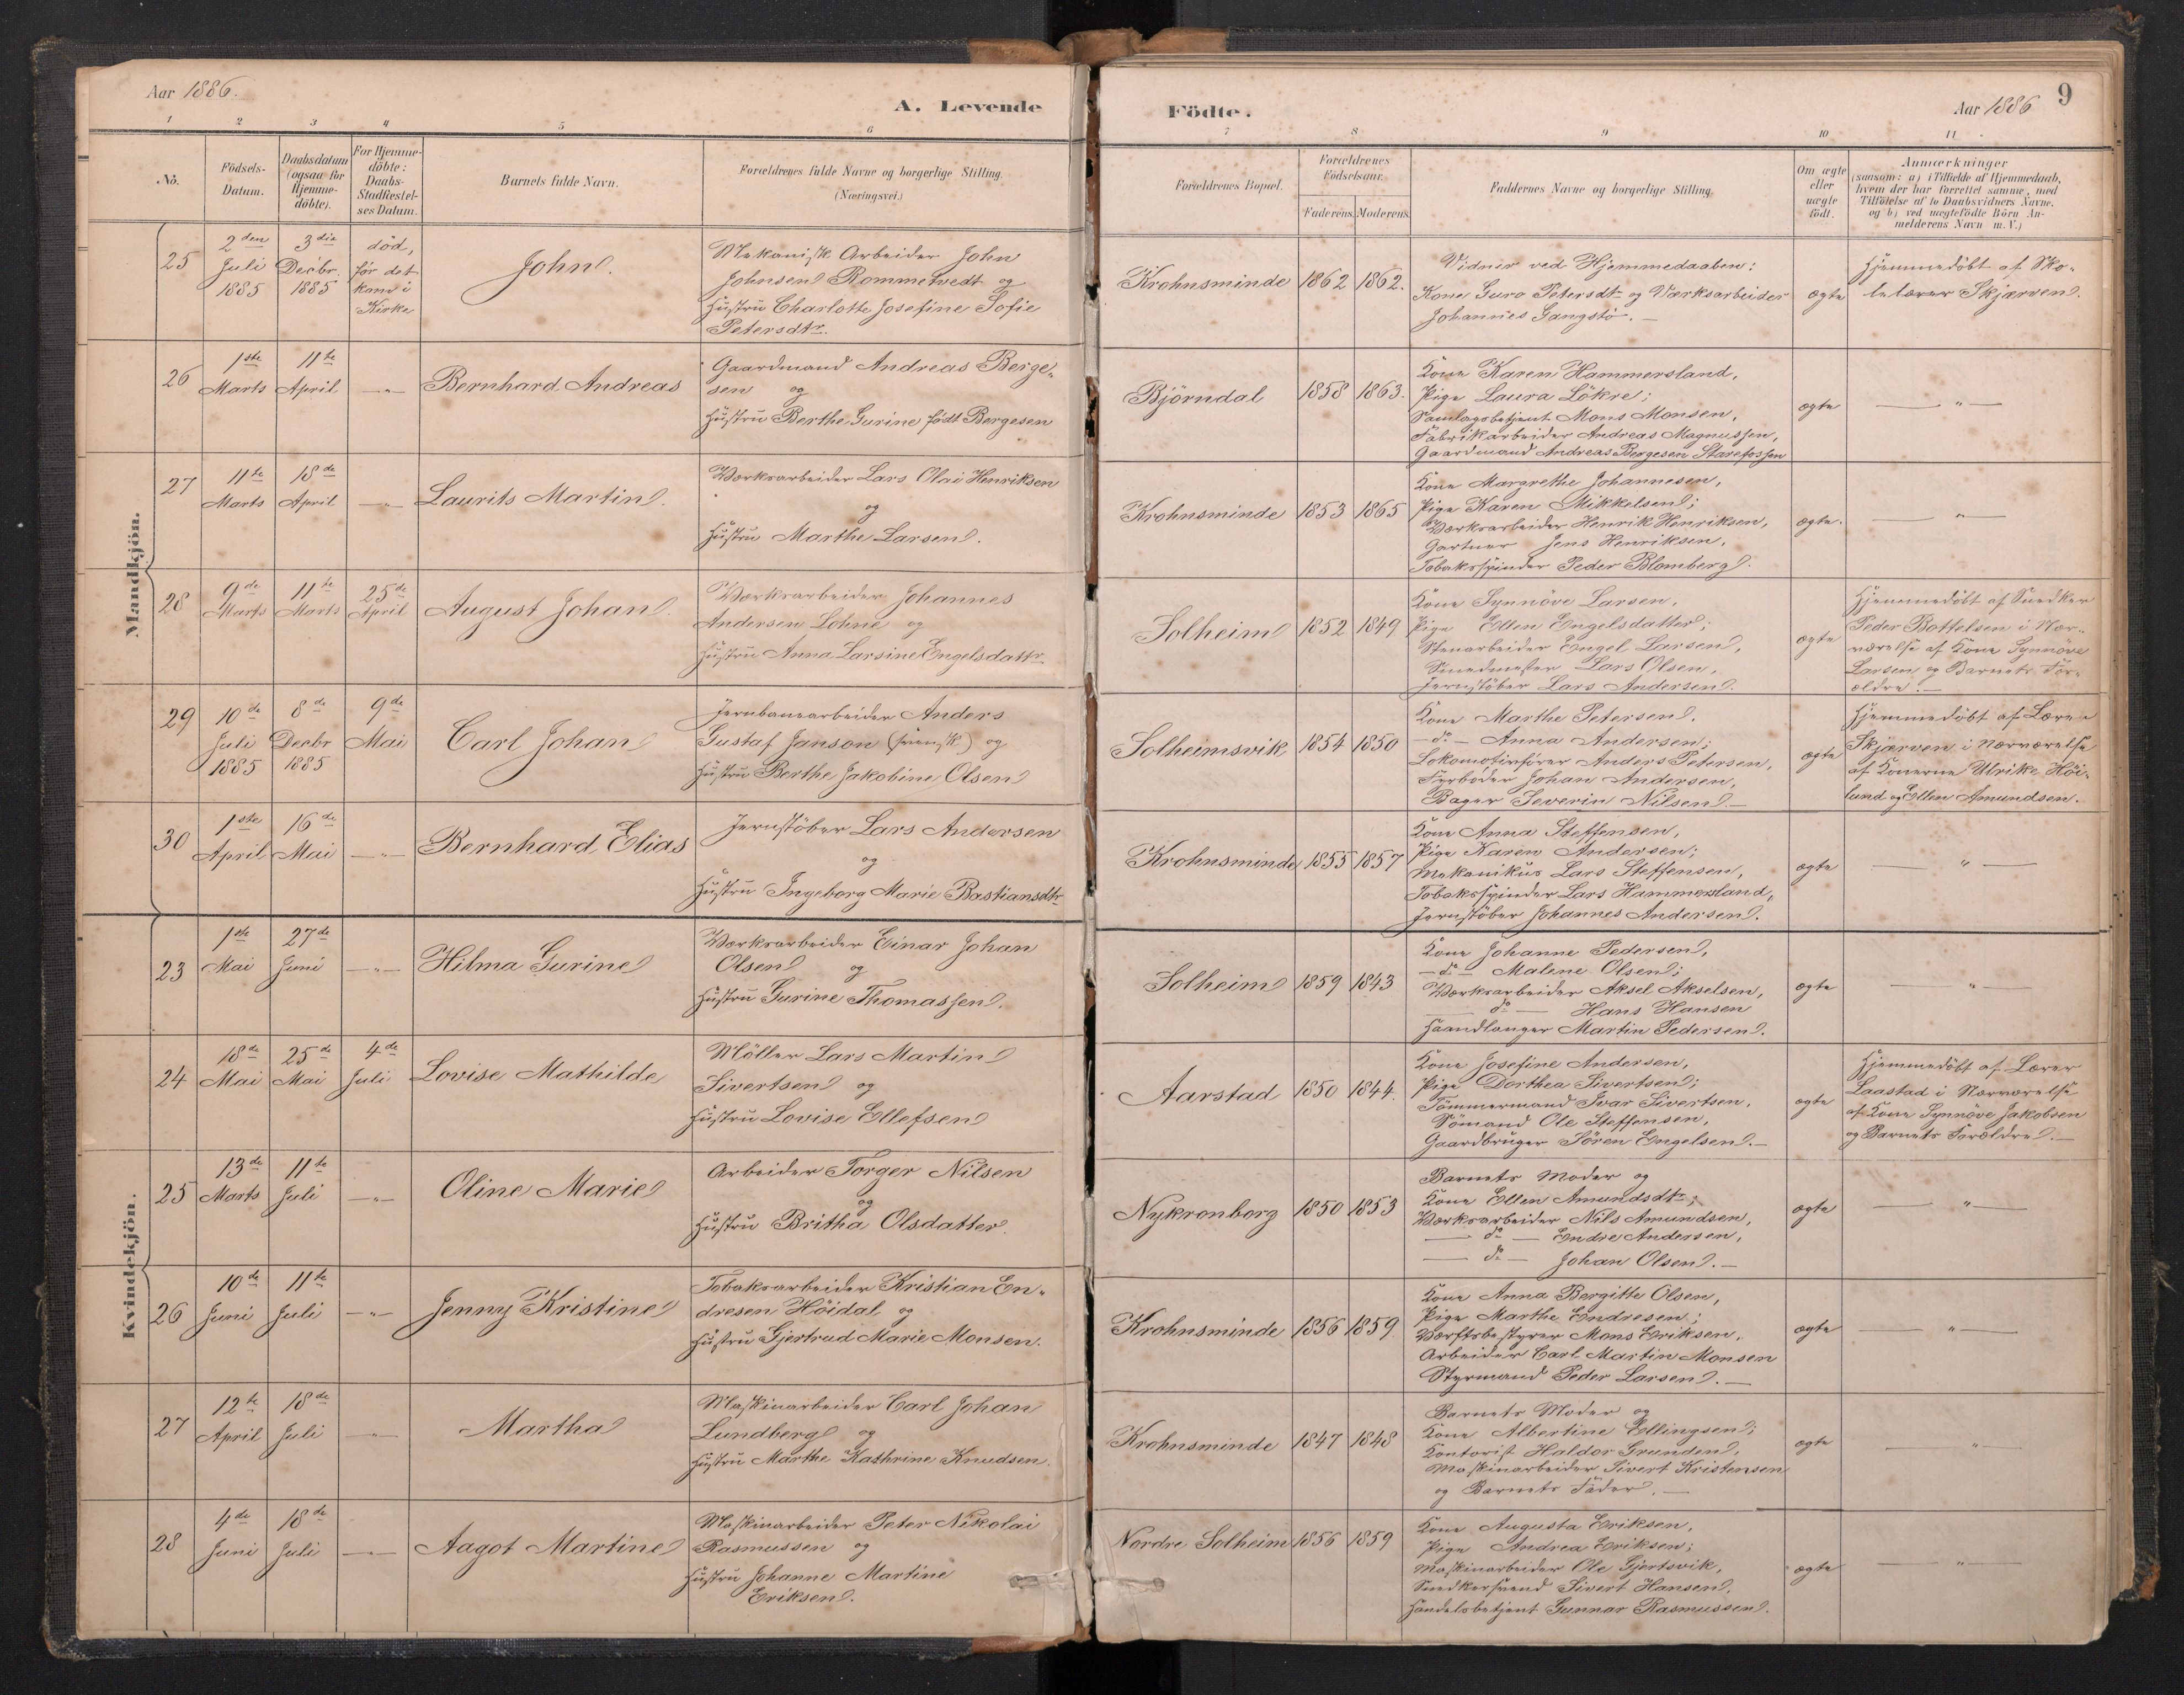 Aar 1886.
A. Levende
Födte.
Aar 1886
9
1 2 3 4 5 6 7 8 9 10 11
No.
Födsels-
Datum.
Daabsdatum
(ogsaa for
Hjemme-
döbte).
For Hjemme-
döbte:
Daabs-
Stadfæstel-
ses Datum.
Barnets fulde Navn.
Forældrenes fulde Navne og borgerlige Stilling.
(Næringsvei.)
Forældrenes Bopæl.
Forældrenes
Födselsaar.
Faderens. Moderens.
Faddernes Navne og borgerlige Stilling.
Om ægte
eller
uægte
födt.
Anmærkninger
(saasom: a) i Tilfælde af Hjemmedaab,
hvem der har forrettet samme, med
Tilföielse af to Daabsvidners Navne.
og b) ved uægtefödte Börn An-
melderens Navn m. V.)
Mandkjön.
25
2den
Juli
1885
3die
Decbr.
1885
död,
før det
kom i
Kirke
John.
Mekanisk Arbeider John
Johnsen Rommetvedt og
Hustru Charlotte Josefine Sofie
Petersdtr.
Krohnsminde 1862 1862.
Vidner ved Hjemmedaaben:
Kone Guro Petersdtr og Værksarbeider
Johannes Gangstö. —
ægte
Hjemmedöbt af Sko-
lelærer Skjærven.
26
1ste
Marts
11te
April
—"—
Bernhard Andreas
Gaardmand Andreas Berge-
sen og
Hustru Berthe Gurine födt Bergesen
Björndal 1858 1863.
Kone Karen Hammersland,
Pige Laura Lökre;
Samlagsbetjent Mons Monsen,
Fabrikarbeider Andreas Magnussen,
Gaardmand Andreas Bergesen Starefossen
ægte
—"—
27
11te
Marts
18de
April
—"—
Laurits Martin.
Værksarbeider Lars Olai Henriksen
og
Hustru Marthe Larsen.
Krohnsminde 1853 1865
Kone Margrethe Johannesen,
Pige Karen Mikkelsen;
Værksarbeider Henrik Henriksen,
Gartner Jens Henriksen,
Tobaksspinder Peder Blomberg.
ægte.
—"—
28
9de
Marts
11te
Marts
25de
April
August Johan
Værksarbeider Johannes
Andersen Lohne og
Hustru Anna Larsine Engelsdattr
Solheim 1852 1849
Kone Synnöve Larsen,
Pige Ellen Engelsdatter;
Stenarbeider Engel Larsen,
Smedmester Lars Olsen,
Jernstöber Lars Andersen.
ægte
Hjemmedöbt af Snedker
Peder Bottelsen i Nær-
værelse af Kone Synnöve
Larsen og Barnets For-
ældre. —
29
10de
Juli
1885
8de
Decbr
1885
9de
Mai
Carl Johan
Jernbanearbeider Anders
Gustaf Janson (svensk) og
Hustru Berthe Jakobine Olsen
Solheimsvik 1854 1850
Kone Marthe Petersen.
—do— Anna Andersen;
Lokomotivförer Anders Petersen,
Fyrböder Johan Andersen,
Bager Severin Nilsen. —
ægte
Hjemmedöbt af Lærer
Skjærven i Nærværelse
af Konerne Ulrike Höi-
lund og Ellen Amundsen.
30
1ste
April
16de
Mai
—"—
Bernhard Elias
Jernstöber Lars Andersen
og
Hustru Ingeborg Marie Bastiansdtr
Krohnsminde 1855 1857
Kone Anna Steffensen,
Pige Karen Andersen;
Mekanikus Lars Steffensen,
Tobaksspinder Lars Hammersland,
Jernstöber Johannes Andersen.
ægte
—"—
Kvindekjön.
23
1ste
Mai
27de
Juni
—"—
Hilma Gurine
Værksarbeider Einar Johan
Olsen og
Hustru Gurine Thomassen.
Solheim 1859 1843
Kone Johanne Pedersen,
—do— Malene Olsen;
Værksarbeider Aksel Akselsen,
—do— Hans Hansen
Haandlanger Martin Pedersen.
ægte
—"—
24
18de
Mai
25de
Mai
4de
Juli
Lovise Mathilde
Möller Lars Martin
Sivertsen og
Hustru Lovise Ellefsen
Aarstad 1850 1844.
Kone Josefine Andersen,
Pige Dorthea Sivertsen;
Tömmermand Ivar Sivertsen,
Sömand Ole Steffensen,
Gaardbruger Sören Engelsen. —
ægte
Hjemmedöbt af Lærer
Laastad i Nærværelse
af Kone Synnöve Jakobsen
og Barnets Forældre. —
25
13de
Marts
11te
Juli
—"—
Oline Marie
Arbeider Torger Nilsen
og
Hustru Britha Olsdatter.
Nykronborg 1850 1853
Barnets Moder og
Kone Ellen Amundsdtr;
Værksarbeider Nils Amundsen,
—do— Endre Andersen,
—do— Johan Olsen. —
ægte
—"—
26
10de
Juni
11te
Juli
—"—
Jenny Kristine
Tobaksarbeider Kristian En-
dresen Höidal og
Hustru Gjertrud Marie Monsen.
Krohnsminde 1856 1859
Kone Anna Bergitte Olsen,
Pige Marthe Endresen;
Værftsbestyrer Mons Eriksen,
Arbeider Carl Martin Monsen
Styrmand Peder Larsen. —
ægte
—"—
27
12te
April
18de
Juli
—"—
Martha
Maskinarbeider Carl Johan
Lundberg og
Hustru Marthe Kathrine Knudsen.
Krohnsminde 1847 1848
Barnets Moder og
Kone Albertine Ellingsen;
Kontorist Haldor Grunden,
Maskinarbeider Sivert Kristensen
og Barnets Fader. —
ægte
—"—
28
4de
Juni
18de
Juli
—"—
Aagot Martine
Maskinarbeider Peter Nikolai
Rasmussen og
Hustru Johanne Martine
Eriksen.
Nordre Solheim 1856 1859
Kone Augusta Eriksen,
Pige Andrea Eriksen;
Maskinarbeider Ole Gjertsvik,
Snedkersvend Sivert Hansen,
Handelsbetjent Gunnar Rasmussen.
ægte
—"—